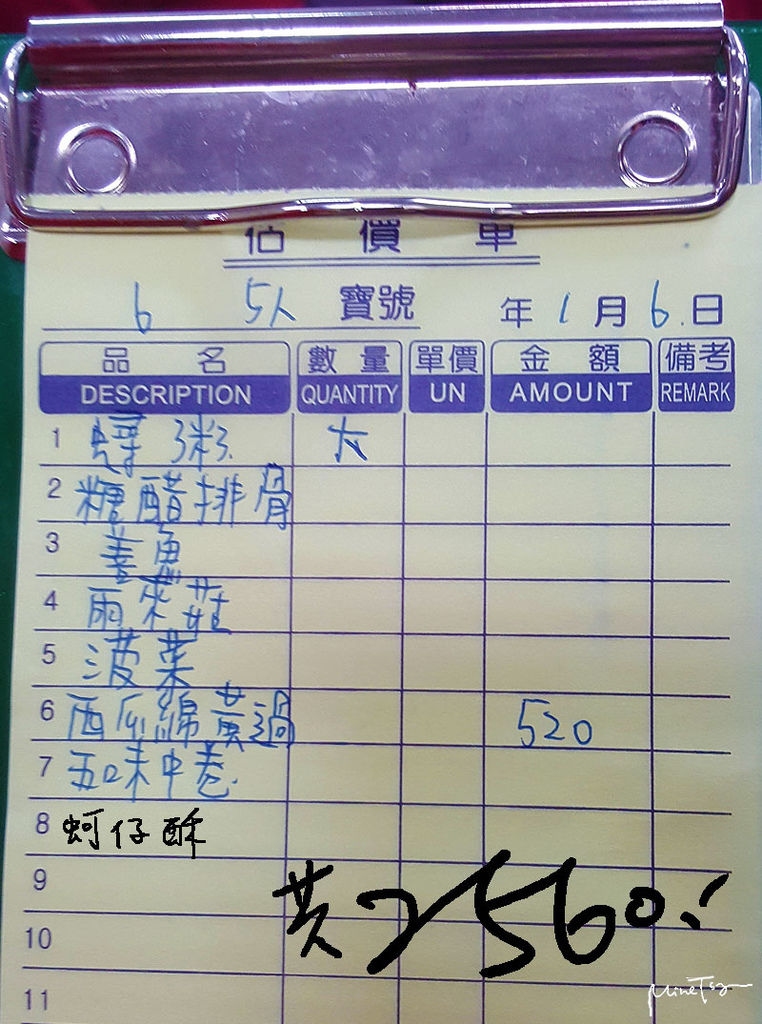 估價單
6 5人 寶號 年 1 月 6 日
品名 數量 單價 金額 備考
DESCRIPTION QUANTITY UN AMOUNT REMARK
1 蟳粥 大
2 糖醋排骨
3 善魚
4 雨來菇
5 菠菜
6 西瓜綿黃過 520
7 五味中卷
8 蚵仔酥
9 共2560.-
10
11